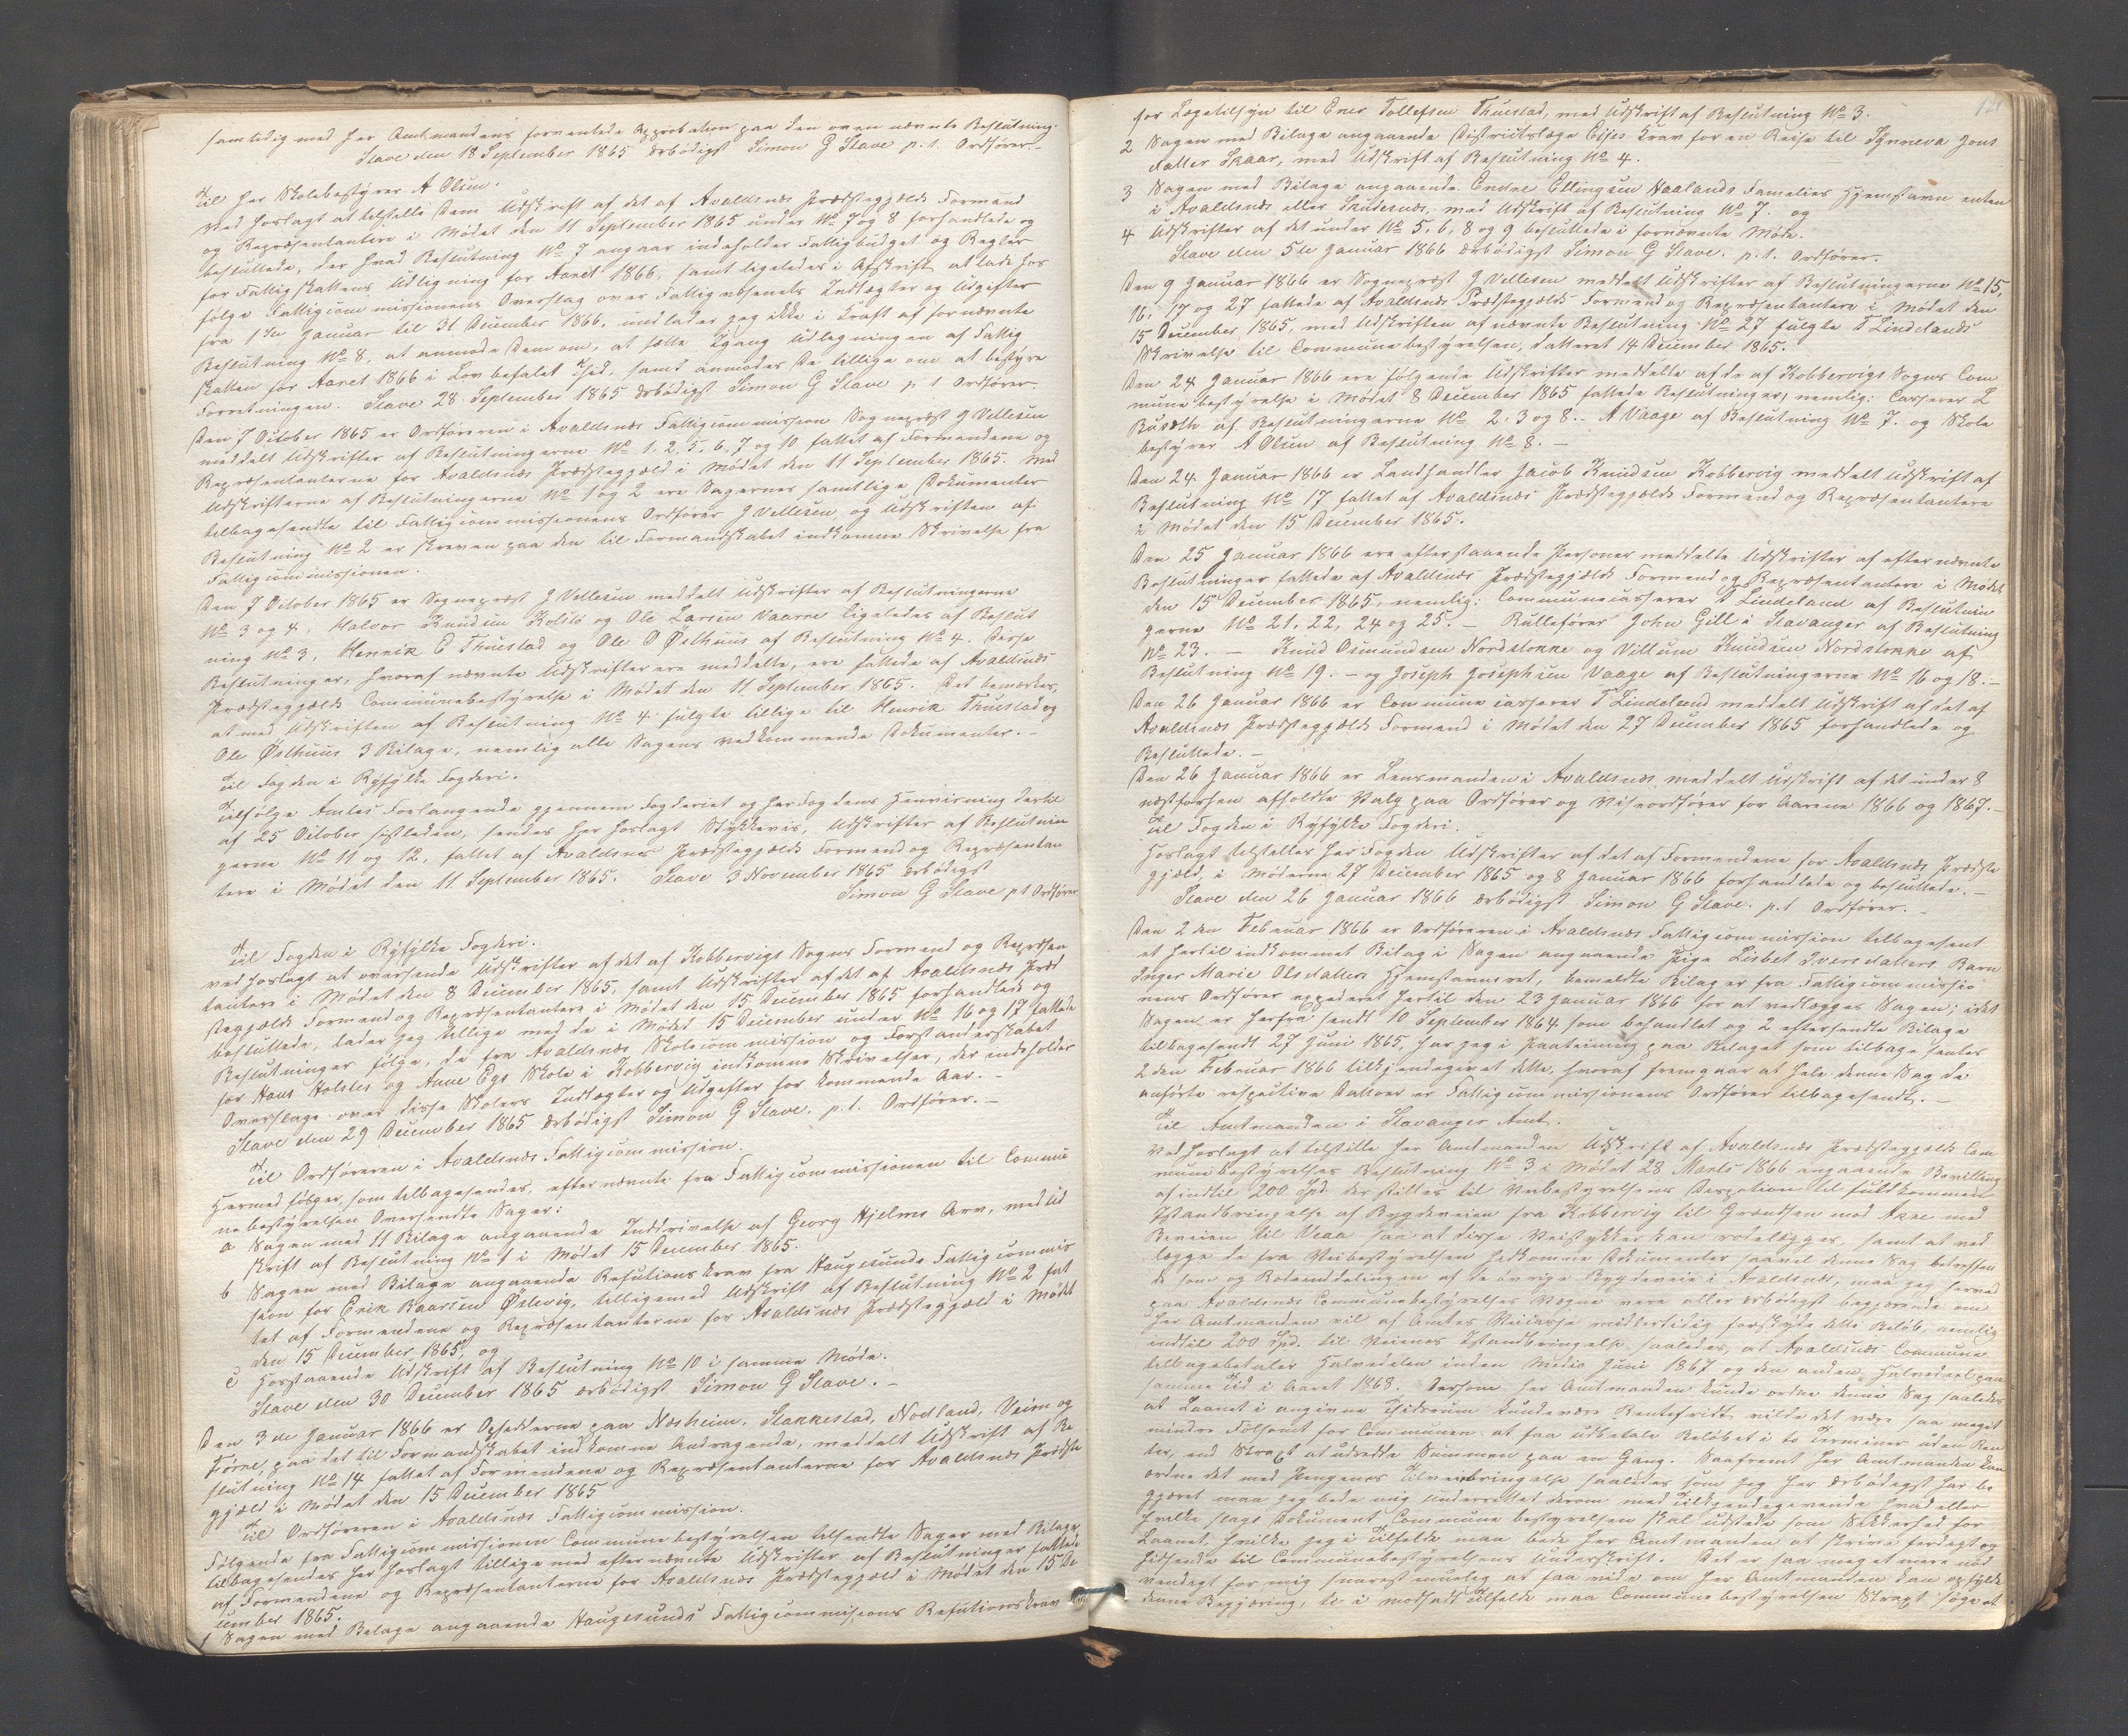 samtidig med Her Amtmandens forventede Approbation paa den oven nævnte Beslutning.
Stave den 18 September 1865 ærbødigst Simon G Stave p. t. Ordfører.
Til Her Skolebestyrer A Olun.
Ved hoslagt at tilstille Dem Udskrift af det af Avaldsnæs Præstegjælds Formænd
og Repræsentantere i Mødet den 11 September 1865 under No 7 og 8 forhandlede og
besluttede, der hvad Beslutning No 7 angaar indeholder Fattigbudget og Regler
for Fattigskattens Udligning for Aaret 1866, samt ligeledes i Afskrift at lade hos
følge Fattigcommissionens Overslag over Fattigvæsenets Indtægter og Udgifter
fra 1ste Januar til 31 December 1866, undlader jeg ikke i Kraft af fornævnte
Beslutning No 8, at anmode Dem om, at sætte Igang Udlegningen af Fattig
skatten for Aaret 1866 i Lov befalet Tid, samt anmodes De tillige om at bestyre
Forretningen. Stave 28 September 1865 ærbødigst Simon G Stave p t Ordfører.
Den 7 October 1865 er Ordføreren i Avaldsnæs Fattigcommission Sognepræst J Vellesen
meddelt Udskrifter af Beslutningerne No 1. 2. 5. 6. 7 og 10 fattet af Formændene og
Repræsentanterne for Avaldsnæs Præstegjæld i Mødet den 11 September 1865. Med
Udskrifterne af Beslutningerne No 1 og 2 ere Sagernes samtlige Dokumenter
tilbagesendte til Fattigcommissionens Ordfører J Vellesen, og Udskriften af
Beslutning No 2 er skreven paa den til Formandskabet indkomne Skrivelse fra
Fattigcommissionen.
Den 7 October 1865 er Sognepræst J Vellesen meddelt Udskrifter af Beslutningerne
No 3 og 4, Halvor Knudsen Kolstø og Ole Larsen Vaarne ligeledes af Beslut
ning No 3, Hennik O Thuestad og Ole O Østhuus af Beslutning No 4. Disse
Beslutninger, hvoraf nævnte Udskrifter ere meddelte, ere fattede af Avaldsnæs
Præstegjælds Communebestyrelse i Mødet den 11 September 1865. Det bemærkes,
at med Udskriften af Beslutning No 4 fulgte tillige til Henrik Thuestad og
Ole Østhuus 3 Bilage, nemlig alle Sagens vedkommende Dokumenter. –
Til Fogden i Ryfylke Fogderi.
Tilfølge Amtets Forlangende gjennem Fogderiet og Her Fogdens Henvisning dertil
af 25 October sistleden, sendes her hoslagt Stykkevis, Udskrifter af Beslutnin
gerne No 11 og 12, fattet af Avaldsnæs Præstegjælds Formænd og Repræsentan
tere i Mødet den 11 September 1865. Stave 3 November 1865 ærbødigst
Simon G Stave p t Ordfører
Til Fogden i Ryfylke Fogderi.
Ved hoslagt at oversende Udskrifter af det af Kobbervigs Sogns Formænd og Repræsen
tantere i Mødet den 8 December 1865, samt Udskrifter af det af Avaldsnæs Præs
tegjælds Formænd og Repræsentantere i Mødet den 15 December 1865 forhandlede og
besluttede, lader jeg tillige med de i Mødet 15 December under No 16 og 17 fattede
Beslutninger følge, de fra Avaldsnæs Skolecommission og Forstanderskabet
for Hans Holstes og Anne Eges Skole i Kobbervig indkomne Skrivelser, der indeholder
Overslage over disse Skolers Indtægter og Udgifter for kommende Aar. –
Stave den 29 December 1865 ærbødigst Simon G Stave. p. t. Ordfører. –
Til Ordføreren i Avaldsnæs Fattigcommission.
Hermed følger, som tilbagesendes, efternævnte fra Fattigcommissionen til Commu
nebestyrelsen Oversendte Sager:
a Sagen med 11 Bilage angaaende Inddrivelse af Georg Hjelms Arv, med Ud
skrift af Beslutning No 1 i Mødet 15 December 1865.
b Sagen med Bilage angaaende Refutions krav fra Haugesunds Fattigcommis
sion for Erik Baarsen Østevig, tilligemed Udskrift af Beslutning No 2 fat
tet af Formændene og Repræsentanterne for Avaldsnæs Præstegjæld i Mødet
den 15 December 1865, og
c Hosstaaende Udskrift af Beslutning No 10 i samme Møde.
Stave den 30 December 1865 ærbødigst Simon G Stave. –
Den 3de Januar 1866 er Opsidderne paa Næsheim, Stakkestad, Nodland, Veim og
Førre, paa det til Formandskabet indkomne Andragende, meddelt Udskrift af Be
slutning No 14 fattet af Formændene og Repræsentanterne for Avaldsnæs Præste
gjæld i Mødet den 15 December 1865
Til Ordføreren i Avaldsnæs Fattigcommission.
Følgende fra Fattigcommissionen Communebestyrelsen tilsendte Sager med Bilage
tilbagesendes her hoslagt tillige med efternævnte Udskrifter af Beslutninger fattede
af Formændene og Repræsentanterne for Avaldsnæs Præstegjæld i Mødet den 15 De
cember 1865.
1 Sagen med Bilage angaaende Haugesunds Fattigcommissions Refutionskrav
121
for Lægetilsyn til Enes Tollefsen Thuestad, med Udskrift af Beslutning No 3.
2 Sagen med Bilage angaaende Districtslæge Eijes Krav for en Reise til Synneva Jons
datter Skaar, med Udskrift af Beslutning No 4.
3 Sagen med Bilage angaaende Endre Ellingsen Haalands Famelies Hjemstavn enten
i Avaldsnæs eller Skudesnæs, med Udskrift af Beslutning No 7. og
4 Udskrifter af det under No 5, 6, 8 og 9 besluttede i fornævnte Møde.
Stave den 5te Januar 1866 ærbødigst Simon G Stave. p. t. Ordfører.
Den 9 Januar 1866 er Sognepræst J Vellesen meddelt Udskrifter af Beslutningerne No 15,
16, 17 og 27 fattede af Avaldsnæs Præstegjælds Formænd og Repræsentantere i Mødet den
15 December 1865, med Udskriften af nævnte Beslutning No 27 fulgte T Lindelands
Skrivelse til Communebestyrelsen, datteret 14 December 1865.
Den 24 Januar 1866 ere følgende Udskrifter meddelte af de af Kobbervigs Sogns Com
munebestyrelse i Mødet 8 December 1865 fattede Beslutninger, nemlig: Casserer L
af Beslutningerne No 2, 3 og 8. A Vaage af Beslutning No 7. og Skole
bestyrer A Olun af Beslutning No 8. –
Den 24 Januar 1866 er Landhandler Jacob Knudsen Kobbervig meddelt Udskrift af
Beslutning No 17 fattet af Avaldsnæs Præstegjælds Formænd og Repræsentantere
i Mødet den 15 December 1865.
Den 25 Januar 1866 ere efterstaaende Personer meddelte Udskrifter af efternævnte
Beslutninger fattede af Avaldsnæs Præstegjælds Formænd og Repræsentantere i Mødet
den 15 December 1865, nemlig: Communecasserer T Lindeland af Beslutnin
gerne No 21, 22, 24 og 25. – Rullefører John Gill i Stavanger af Beslutning
No 23. – Knud Osmundsen Nordstokke og Villum Knudsen Nordstokke af
Beslutning No 19. – og Joseph Josephsen Vaage af Beslutningerne No 16 og 18. –
Den 26 Januar 1866 er Communecasserer T Lindeland meddelt Udskrift af det af
Avaldsnæs Præstegjælds Formænd i Mødet den 27 December 1865 forhandlede og
Besluttede. –
Den 26 Januar 1866 er Lensmanden i Avaldsnæs meddelt Udskrift af det under 8
næstforhen afholdte Valg paa Ordfører og Viseordfører for Aarene 1866 og 1867. –
Til Fogden i Ryfylke Fogderi.
Hoslagt tilstilles Her Fogden Udskrifter af det af Formændene for Avaldsnæs Præste
gjæld, i Møderne 27 December 1865 og 8 Januar 1866 forhandlede og besluttede. –
Stave den 26 Januar 1866 ærbødigst Simon G Stave. p. t Ordfører. –
Den 2den Februar 1866 er Ordføreren i Avaldsnæs Fattigcommission tilbagesent
et hertil indkommet Bilag i Sagen angaaende Pige Lisbet Iversdatters Barn
Inger Marie Olsdatters Hjemstavnsret, bemeldte Bilag er fra Fattigcommissio
nens Ordfører expederet hertil den 23 Januar 1866 for at vedlægges Sagen; idet
Sagen er herfra sendt 10 September 1864 som behandlet og 2 eftersendte Bilage
tilbagesendt 27 Juni 1865, har jeg i Paategning paa Bilaget som tilbage sendes
2den Februar 1866 tilkjendegivet dette, hvoraf fremgaar at hele denne Sag de
anførte respective Dattoer er Fattigcommissionens Ordfører tilbagesendt. –
Til Amtmanden i Stavanger Amt.
Ved hoslagt at tilstille Her Amtmanden Udskrift af Avaldsnæs Præstegjælds Com
munebestyrelses Beslutning No 3 i Mødet 28 Marts 1866 angaaende Bevilling
af indtil 200 Spd. der stilles til Veibestyrelsens Desposition til fuldkommen
Istandbringelse af Bygdeveien fra Kobbervig til Grændsen mod med
Biveien til Veaa saa at disse Veistykker kan rodelægges, samt at ved
lægge de fra Veibestyrelsen hidkomne Dokumenter saavel denne Sag betreffen
de som og Rodeinddelingen af de øvrige Bygdeveie i Avaldsnæs, maa jeg herved
paa Avaldsnæs Communebestyrelses Vegne være aller ærbødigst begjærende om
Her Amtmanden vil af Amtets Veicasse midlertidig forskyde dette Beløb, nemlig
indtil 200 Spd. til Veienes Istandbringelse saaledes, at Avaldsnæs Commune
tilbagebetaler Halvedelen inden Medio Juni 1867 og den anden Halvedeel paa
samme Tid i Aaret 1868. Dersom Her Amtmanden kunde ordne denne Sag saaledes
at Laanet i angivne Tidsrum kunde være Rentefridt vilde det være saa meget
mindre Følsomt for Communen at faa udbetale Beløbet i to Terminer uden Ren
ter, end Strax at udrædde Summen paa en Gang. Saafremt Her Amtmanden kan
ordne det med Pengenes Tilveiebringelse saaledes som jeg her ærbødigst har be
gjæret maa jeg bede mig underrettet derom med Tilkjendegivende hvad eller
hvilke slags Dokument Communebestyrelsen skal udstede som Sikkerhed for
Laanet, hvilke jeg i Tilfælde maa bede Her Amtmanden at skrive færdigt og
hidsende til Communebestyrelsens Underskrift. Det er saa meget mere nød
vendigt for mig snarest muelig at faa vide om Her Amtmanden kan opfylde
denne Begjæring, da i modsadt Tilfælde maa Communebestyrelsen Straxt søge at